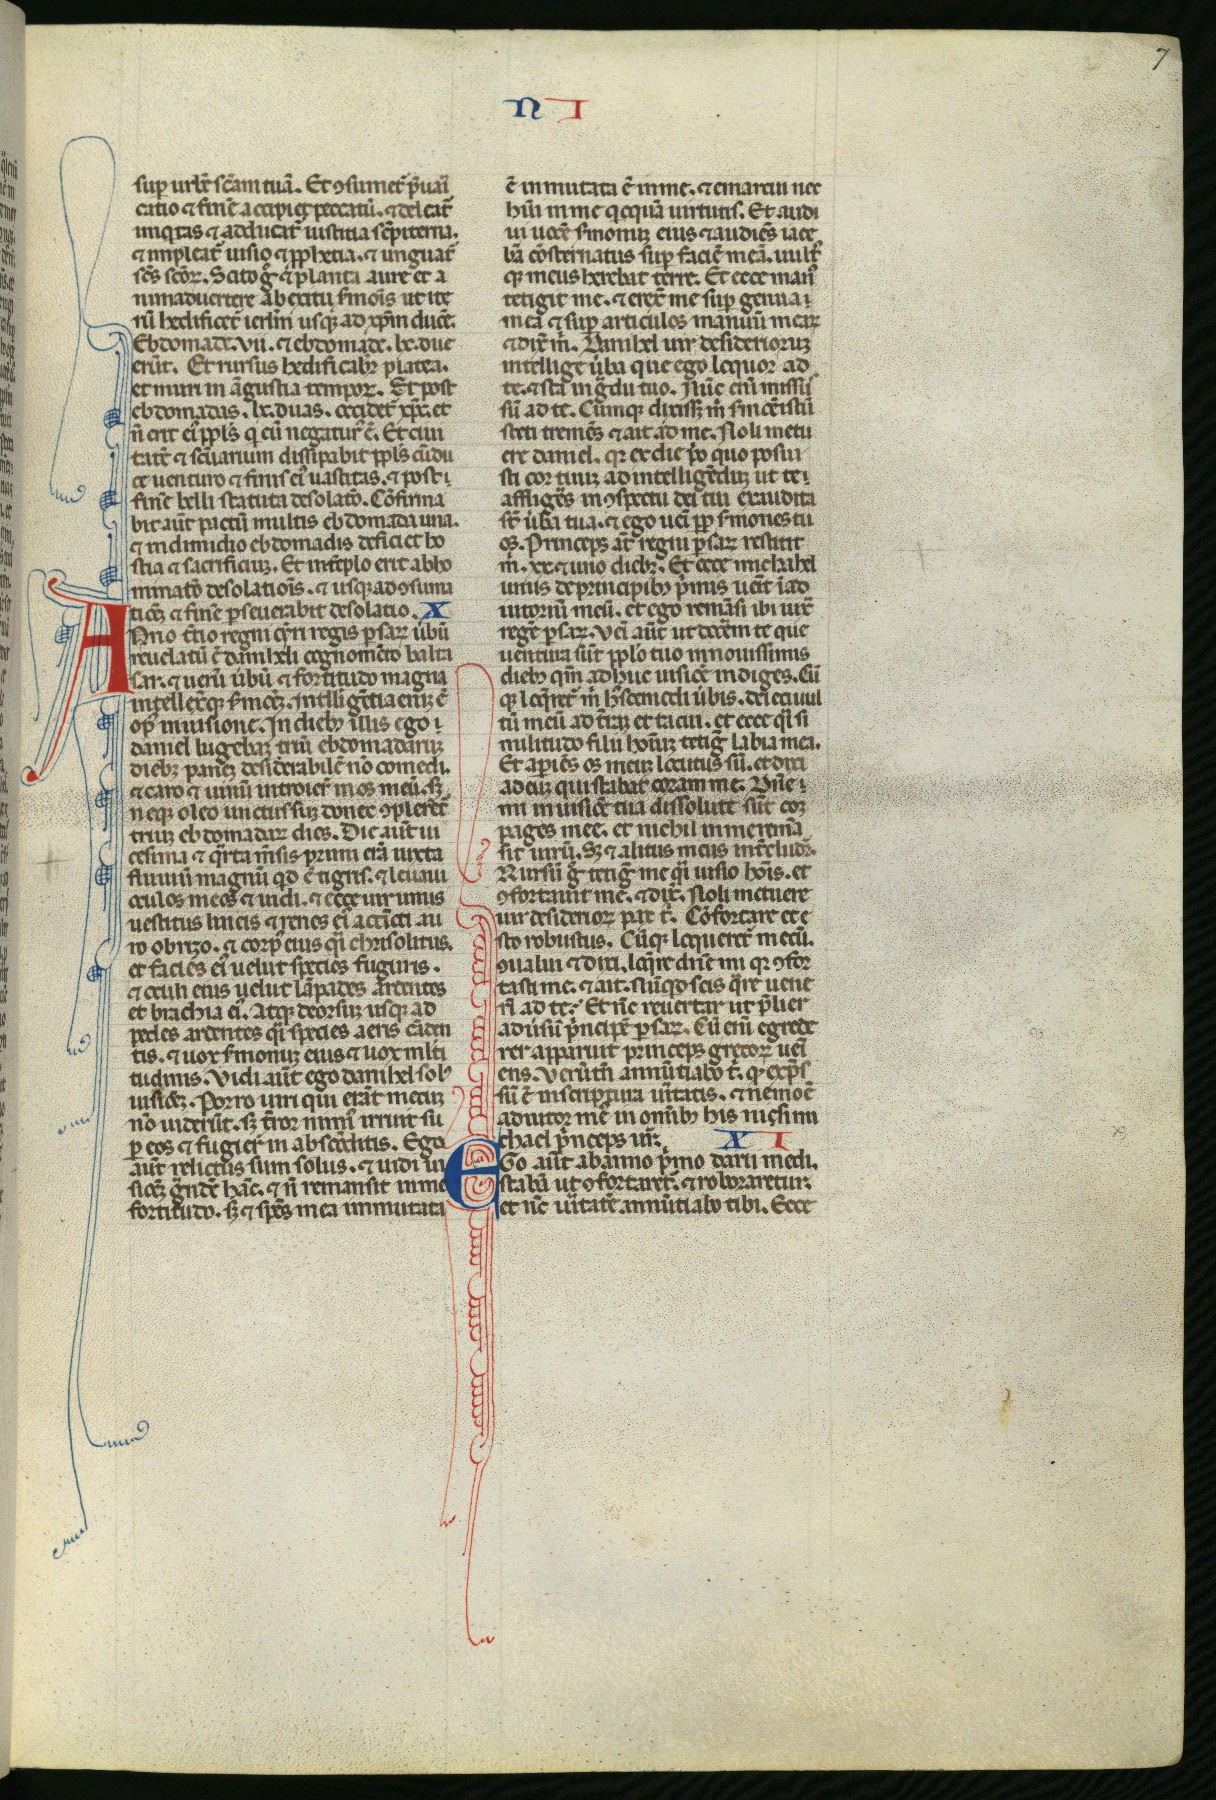 7
N I
sup urbē sc̄am tuā. Et ꝯsumet̄ p̄uari
catio ⁊ finē accipiet peccatū. ⁊ deleat̄
iniq̇tas ⁊ adducat̄ iustitia sēpiterna.
⁊ impleat̄ uisio ⁊ ꝓphetia. ⁊ unguat̄
sc̄s sc̄oꝝ. Scito g̊ ⁊ p̄planta aure et a
nimaduertere Ab exitu ẜmōis ut ite
rū hedificet̄ ierl̄m usq; ad xp̄m ducē.
Ebdomade. vii. ⁊ ebdomade. lx. due
erūt. Et rursus hedificabit̄ platea.
et muri in āgustia tempoꝝ. Et post
ebdomadas. lx. duas. occidet̄ xp̄c. et
n̄ erit ei ppl̄s q̇ eū negatur̄ ē. Et ciui
tatē ⁊ sc̄uarium dissipabit ppl̄s cū du
ce venturo ⁊ finis ei uastitas. ⁊ post
finē belli statuta desolatō. Cōfirma
bit aūt pactū multis ebdomada una.
⁊ in dimidio ebdomadis deficiet ho
stia ⁊ sacrificiuꝫ. Et in tēplo erit abho
minatō desolatiōis. ⁊ usq; ad ꝯsuma
tioēꝫ ⁊ finē ꝑseuerabit desolatio. X
ANno t̄tio regni cyri regis ꝑsaꝝ ūbū
reuelatū ē daniheli cognomēto balta
sar. ⁊ uerū ūbū ⁊ fortitudo magna
intellexitq; ẜmōeꝫ. intelligētia eniꝫ ē
op̄ in uisione. In dieb; illis ego
daniel lugebaꝫ triū ebdomadaruꝫ
dieb; paneꝫ desiderabilē nō comedi.
⁊ caro ⁊ uinū introiēt̄ in os meū. sꝫ
neq; oleo unctus suꝫ donec ꝯplerēt̄
triuꝫ ebdomadaꝝ dies. Die aūt ui
cesima ⁊ q̇rta m̄sis primi erā iuxta
fluuiū magnū qd̄ ē tigris. ⁊ leuaui
oculos meos ⁊ uidi. ⁊ ecce uir unus
uestitus lineis ⁊ renes ei accīcti au
ro obrizo. ⁊ corp̄ eius q̇i chrisolitus.
et facies ei uelut species fulguris.
⁊ oculi eius uelut lāpades ardentes
et brachia ei. Atq; deorsuꝫ usq; ad
pedes ardentes q̇i species aeris cāden
tis. ⁊ uox ẜmonuꝫ eius ⁊ uox ml̄ti
tudinis. Vidi aūt ego danihel solꝰ
uisiōeꝫ. Porro uiri qui erāt mecuꝫ
nō uiderūt. sꝫ t̄ror nimiꝰ irruit su
ꝑ eos ⁊ fugiert̄ in abscōditis. Ego
aūt relictus sum solus. ⁊ uidi ui
sioēꝫ g̊ndē hāc. ⁊ n̄ remansit in me
fortitudo. sꝫ ⁊ spēs mea inmutata
ē inmutata ē in me. ⁊ emarcui nec
hūi in me q̇cquā uirtutis. Et audi
ui uocē ẜmonuꝫ eius ⁊ audiēs iace
bā cōsternatus sup faciē meā. uult
q; meus herebat terre. Et ecce manꝰ
tetigit me. ⁊ erex̄ me sup genua
mea ⁊ sup articulos manuū meaꝝ
⁊ dix̄ m̄. Danihel uir desiderioruꝫ
intellige ūba que ego loquor ad
te. ⁊ sta in g̊du tuo. Nūc eni missus
sū ad te. Cumq; dixiss; m̄ ẜmōe istū
steti tremēs ⁊ ait ad me. Noli metu
ere daniel. q; ex die p̄o quo posui
sti cor tuuꝫ ad intelligēduꝫ ut te
affligēs in ꝯspectu dei tui exaudita
st̄ ūba tua. ⁊ ego ueni ꝓp ẜmones tu
os. Princeps āt regni ꝑsaꝝ restitit
m̄. xx. ⁊ uno dieb;. Et ecce michahel
unus de principib; p̄mis uēit i ad
iutoriū meū. et ego remāsi ibi iux̄
regē ꝑsaꝝ. Vei aūt ut docerem te que
uentura sūt ppl̄o tuo in nouissimis
dieb; qm̄ adhuc uisio ē in diges. Cū
q; loq̄ret̄ m̄ h̄scemodi ūbis. deieci uul
tū meū ad t̄raꝫ et tacui. et ecce q̇i si
militudo filii hoīuꝫ tetiḡ labia mea.
Et apiēs os meuꝫ locutus sū. et dixi
ad eūꝫ qui stabat coram me. Dn̄e
mi in uisiōe tua dissolute sūt cō
pages mee. et nichil in me remā
sit uiriū. Sꝫ ⁊ alitus meus int̄cludit̄.
Rursū g̊ tetiḡ me q̇i uisio hoīs. et
ꝯfortauit me. ⁊ dix̄. Noli metuere
uir desiderioꝝ pax t̄. Cōfortare et e
sto robustus. Cūq; loqueret̄ mecū.
ꝯualui ⁊ dixi. loq̄re dn̄e mi q; ꝯfor
tasti me. ⁊ ait. Nūqd scis q̇re uene
rī ad te? Et nc̄ reuertar ut p̄lier
ad ūsū p̄ncipē ꝑsaꝝ. Cū eni egrede
rer apparuit princeps grecoꝝ ueni
ens. Verūtn̄ annūtiabo t̄. q̇ exp̄s
sū ē in scriptura ūitatis. ⁊ nemo ē
adiutor meꝰ in omīb; his nisi mi
chael p̄nceps ur̄. X I
EGo aūt ab anno p̄mo darii medi.
stabā ut ꝯfortaret̄. ⁊ roboraretur.
et nc̄ ūitatē annūtiabo tibi. Ecce